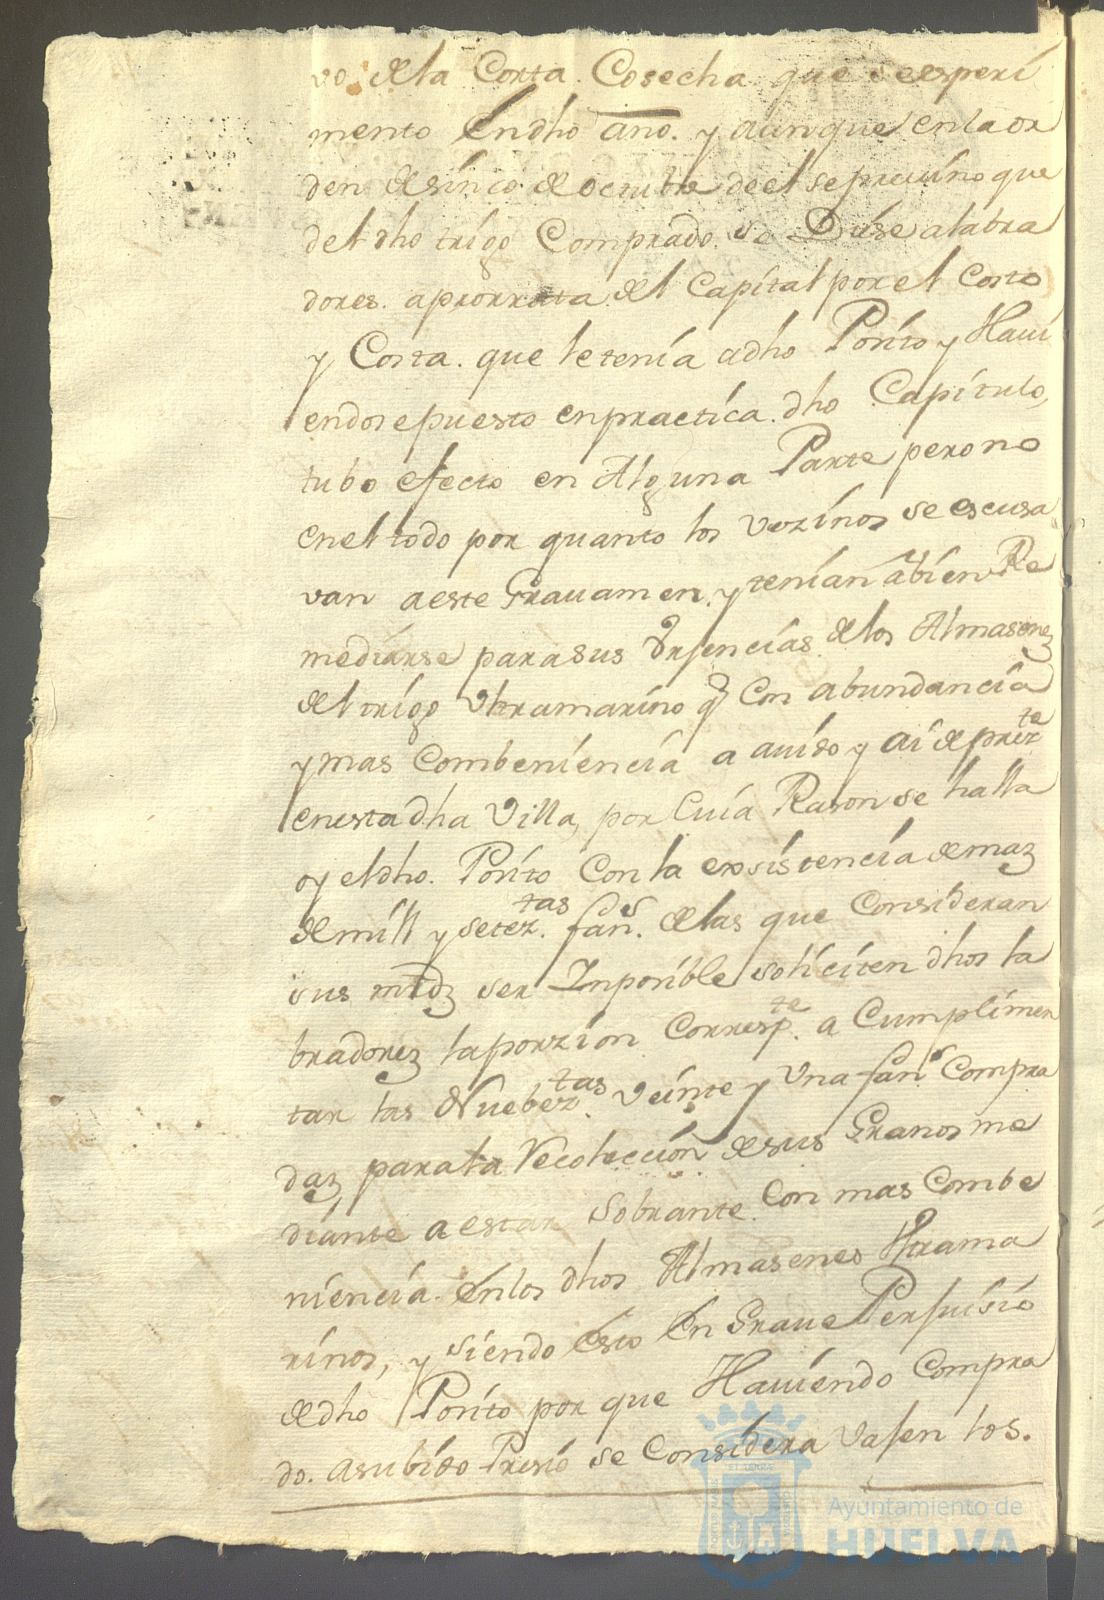 vo de la Corta Cosecha que seesperi
mento Endho año. y aunque enlaor
den desinco de octubre deel se previno que
del dho trigo Comprado se Diese alabra
dores aprorrata del Capital porel Costo
y Costa. que letenia adho Posito y Havi
endosepuesto enpractica dho Capitulo,
tubo efecto en Alguna Parte perono
enel todo por quanto los vezinos se escusa
van aeste Gravamen, y tenian abien Re
mediarse parasus Urjencias delos Almasenez
del trigo Ultramarino q Con abundancia
y mas Combeniencia a avido y ai depreztte
enesta dha Villa, por Cuia Rason se halla
oy eldho. Posito Con la exsistencia demaz
demill y setez.tas fan.s delas que Consideran
sus mrdz ser Inposible soliciten dhos la
bradorez laporzion Corresp.te a Cumplimen
tar las Nuebez.tas veinte y Una fan.s Compra
daz, parala Recoleccion desus Granos me
diante a estar Sobrante Con mas Combe
niencia. Enlos dhos Almasenes Ultrama
rinos, y siendo Esto En Grave Perjuisio
dedho Posito por que Haviendo Compra
do. asubido Presio se Considera vajen los.
Ayuntamiento de
HUELVA